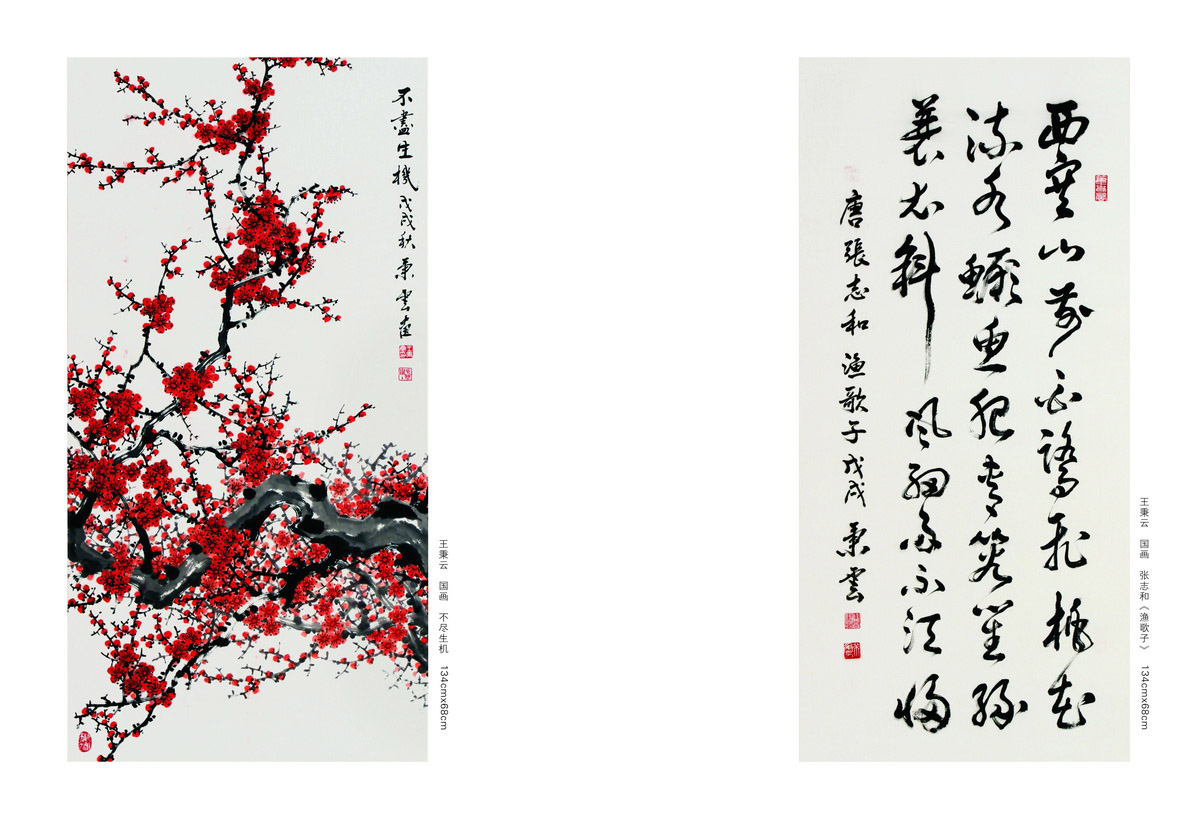 不盡生機
戊戌秋秉雲
王秉云 国画 不尽生机 134cmx68cm
西塞山前白鷺飛桃花
流水鱖魚肥青箬笠綠
蓑衣斜風細雨不須歸
唐張志和漁歌子戊戌秉雲
王秉云 国画 张志和《渔歌子》 134cmx68cm